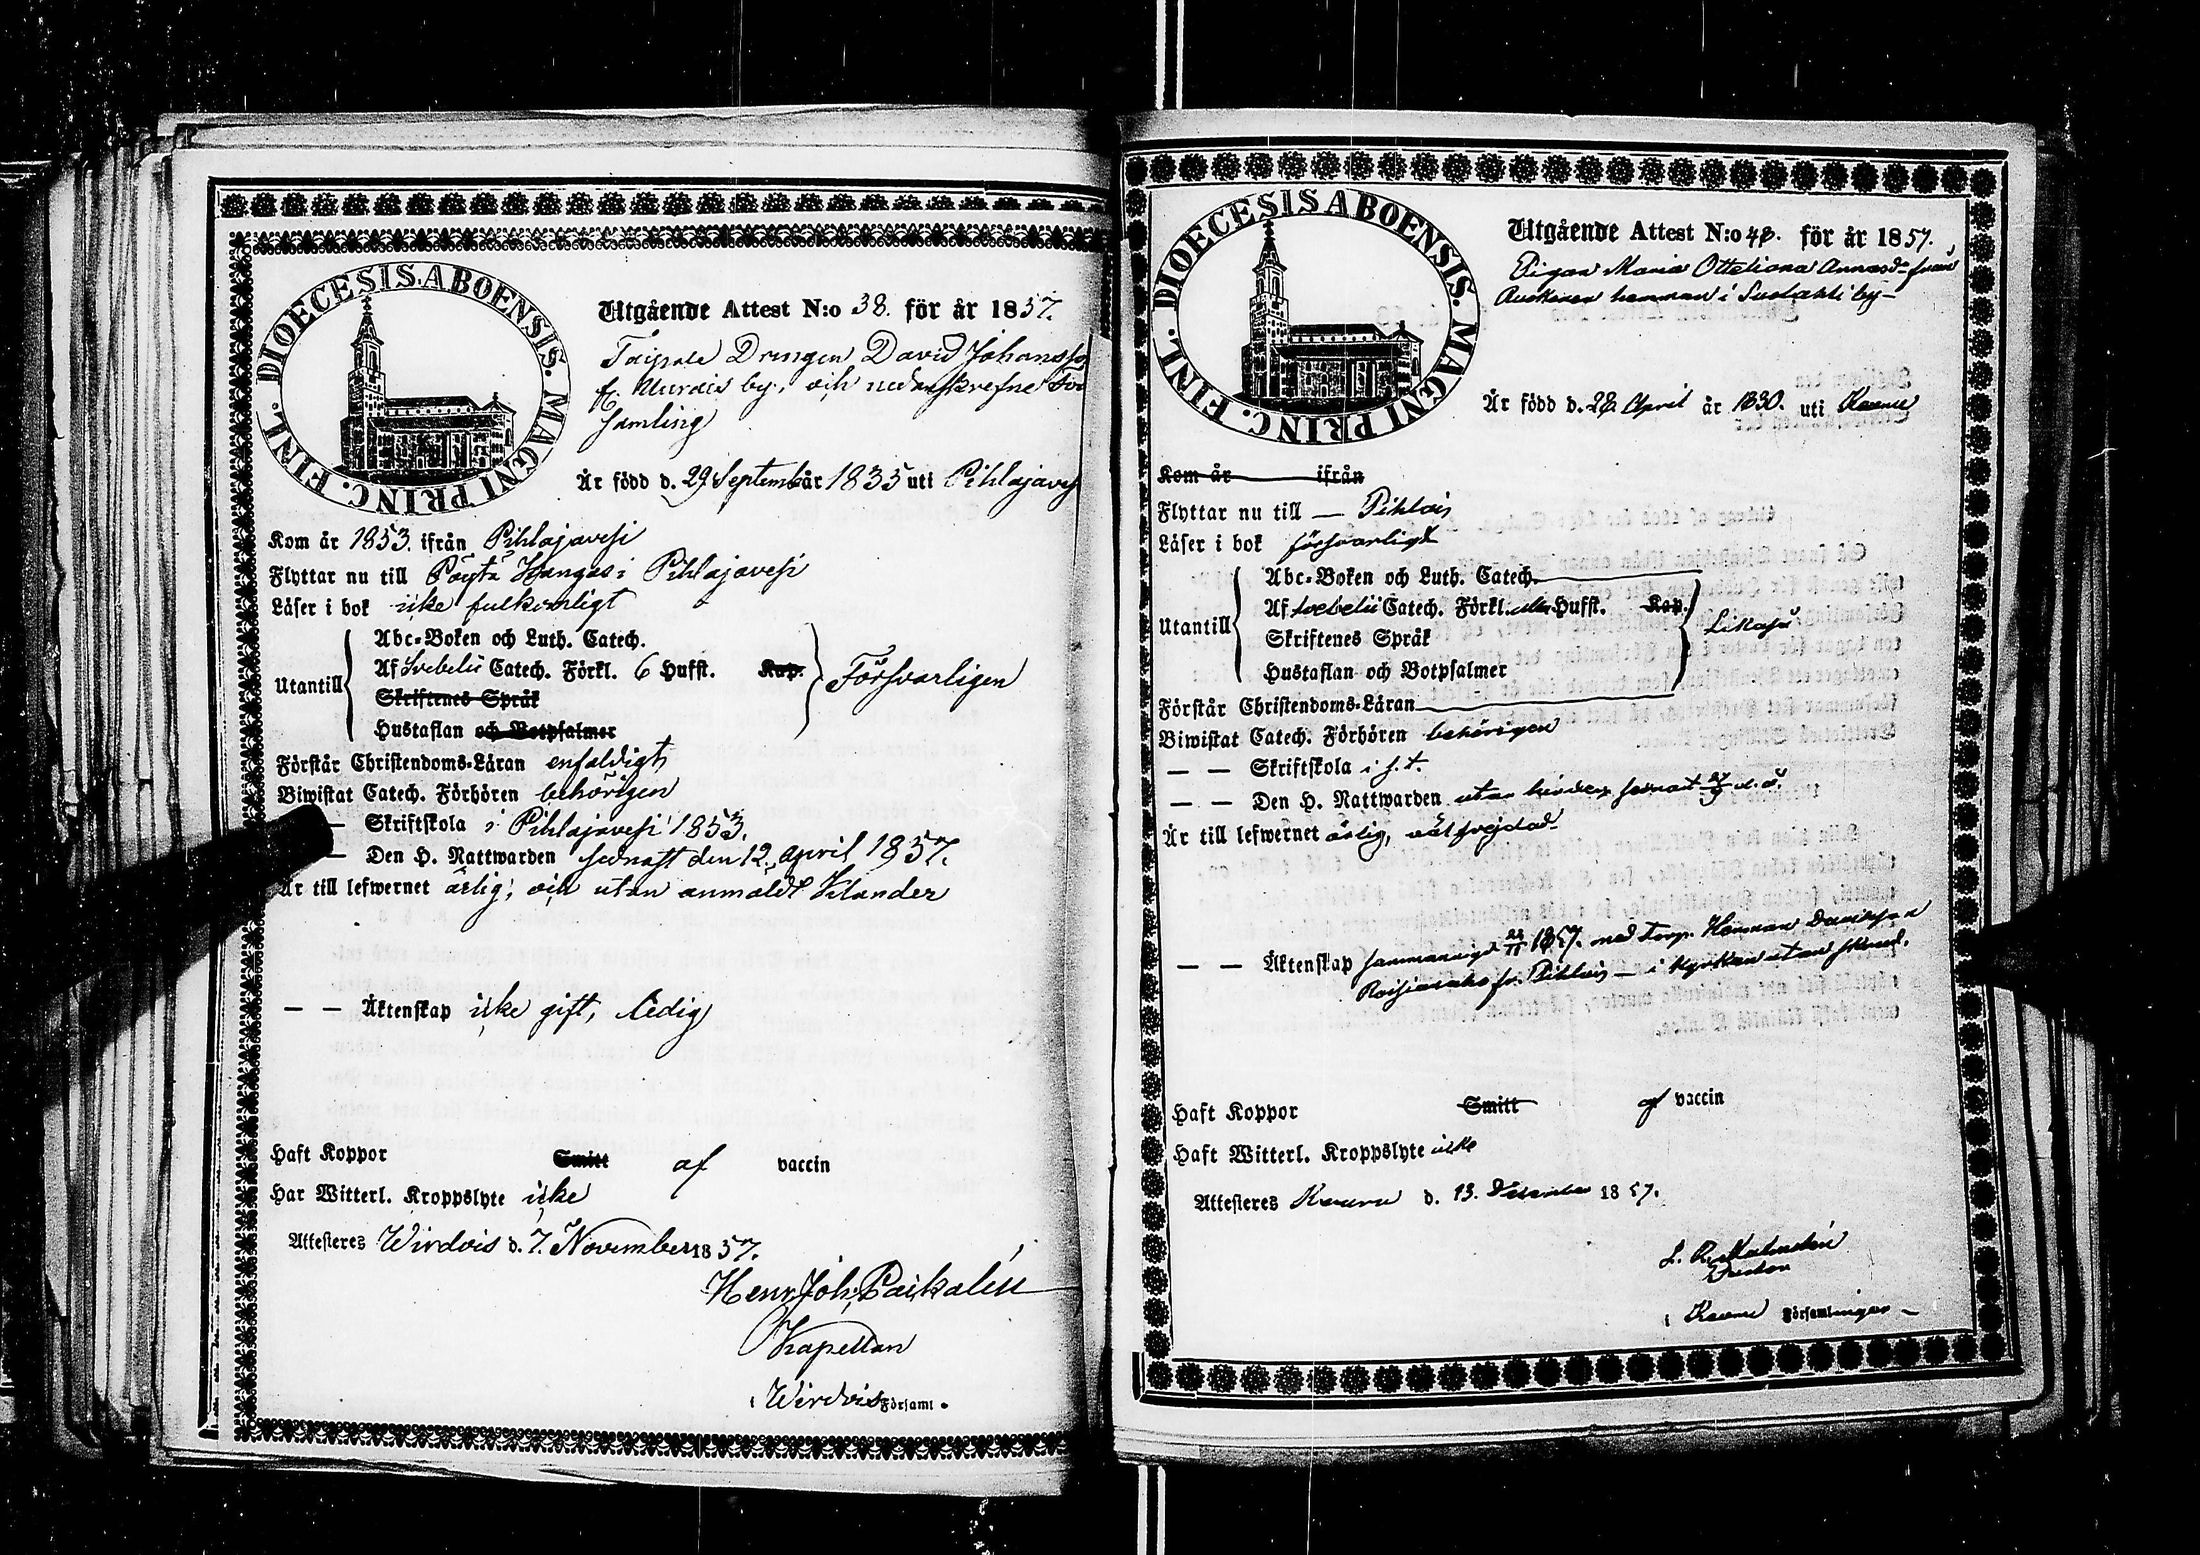 DIOECESIS ABOENSIS. MAGNI PRINC. FINL.
Utgående Attest N:o 38. för år 1857.
Taipale Drengen David Johansson
fr. Murais by, och nedanskrefne för
samling
Är född d. 29 Septemb år 1835 uti Pihlajaves
Kom år 1853. ifrån Pihlajavesi
Flyttar nu till Pöytä Kangas i Pihlajavesi
Läser i bok icke fulkomligt
Abc-Boken och Luth. Catech.
Af Svebelii Catech. Förkl. 6 Hufst. Kap.
Utantill Skriftenes Språk Försvarligen
Hustaflan och Botpsalmer
Förstår Christendoms-Läran enfaldigt
Biwistat Catech. Förhören behörigen
— Skriftskola i Pihlajavesi 1853.
— Den H. Nattwarden sednast den 12. April 1857.
Är till lefwernet ärlig, och utan anmäldt klander
— — Äktenskap icke gift, ledig
Haft Koppor Smitt af vaccin
Har Witterl. Kroppslyte icke
Attesteres Wirdois d. 7. November 1857.
Henr. Joh. Paikalén
Kapellan
i Wirdois Församl.
DIOECESIS ABOENSIS. MAGNI PRINC. FINL.
Utgående Attest N:o 48. för år 1857.
Pigan Maria Otteliana Annasdr från
hemman i by
Är född d. 28 April år 1830. uti Keuru
Kom år ifrån
Flyttar nu till — Pihlois
Läser i bok försvarligt
Abc-Boken och Luth. Catech.
Af Svebelii Catech. Förkl. Hufst. Kap.
Utantill Skriftenes Språk Likaså
Hustaflan och Botpsalmer
Förstår Christendoms-Läran
Biwistat Catech. Förhören behörigen
— — Skriftskola i s. t.
— — Den H. Nattwarden utan hinder senast 27/9 d. å.
Är till lefwernet ärlig, väl frejdad
— — Äktenskap sammanvigd 22/11 1857. med Torp. Herman Davidsson
fr. Pihlois — i kyrkan utan
Haft Koppor Smitt af vaccin
Haft Witterl. Kroppslyte icke
Attesteres Keuru d. 13. December 1857.
L. R. Malmstén
Pastor
i Keuru Församlingar —